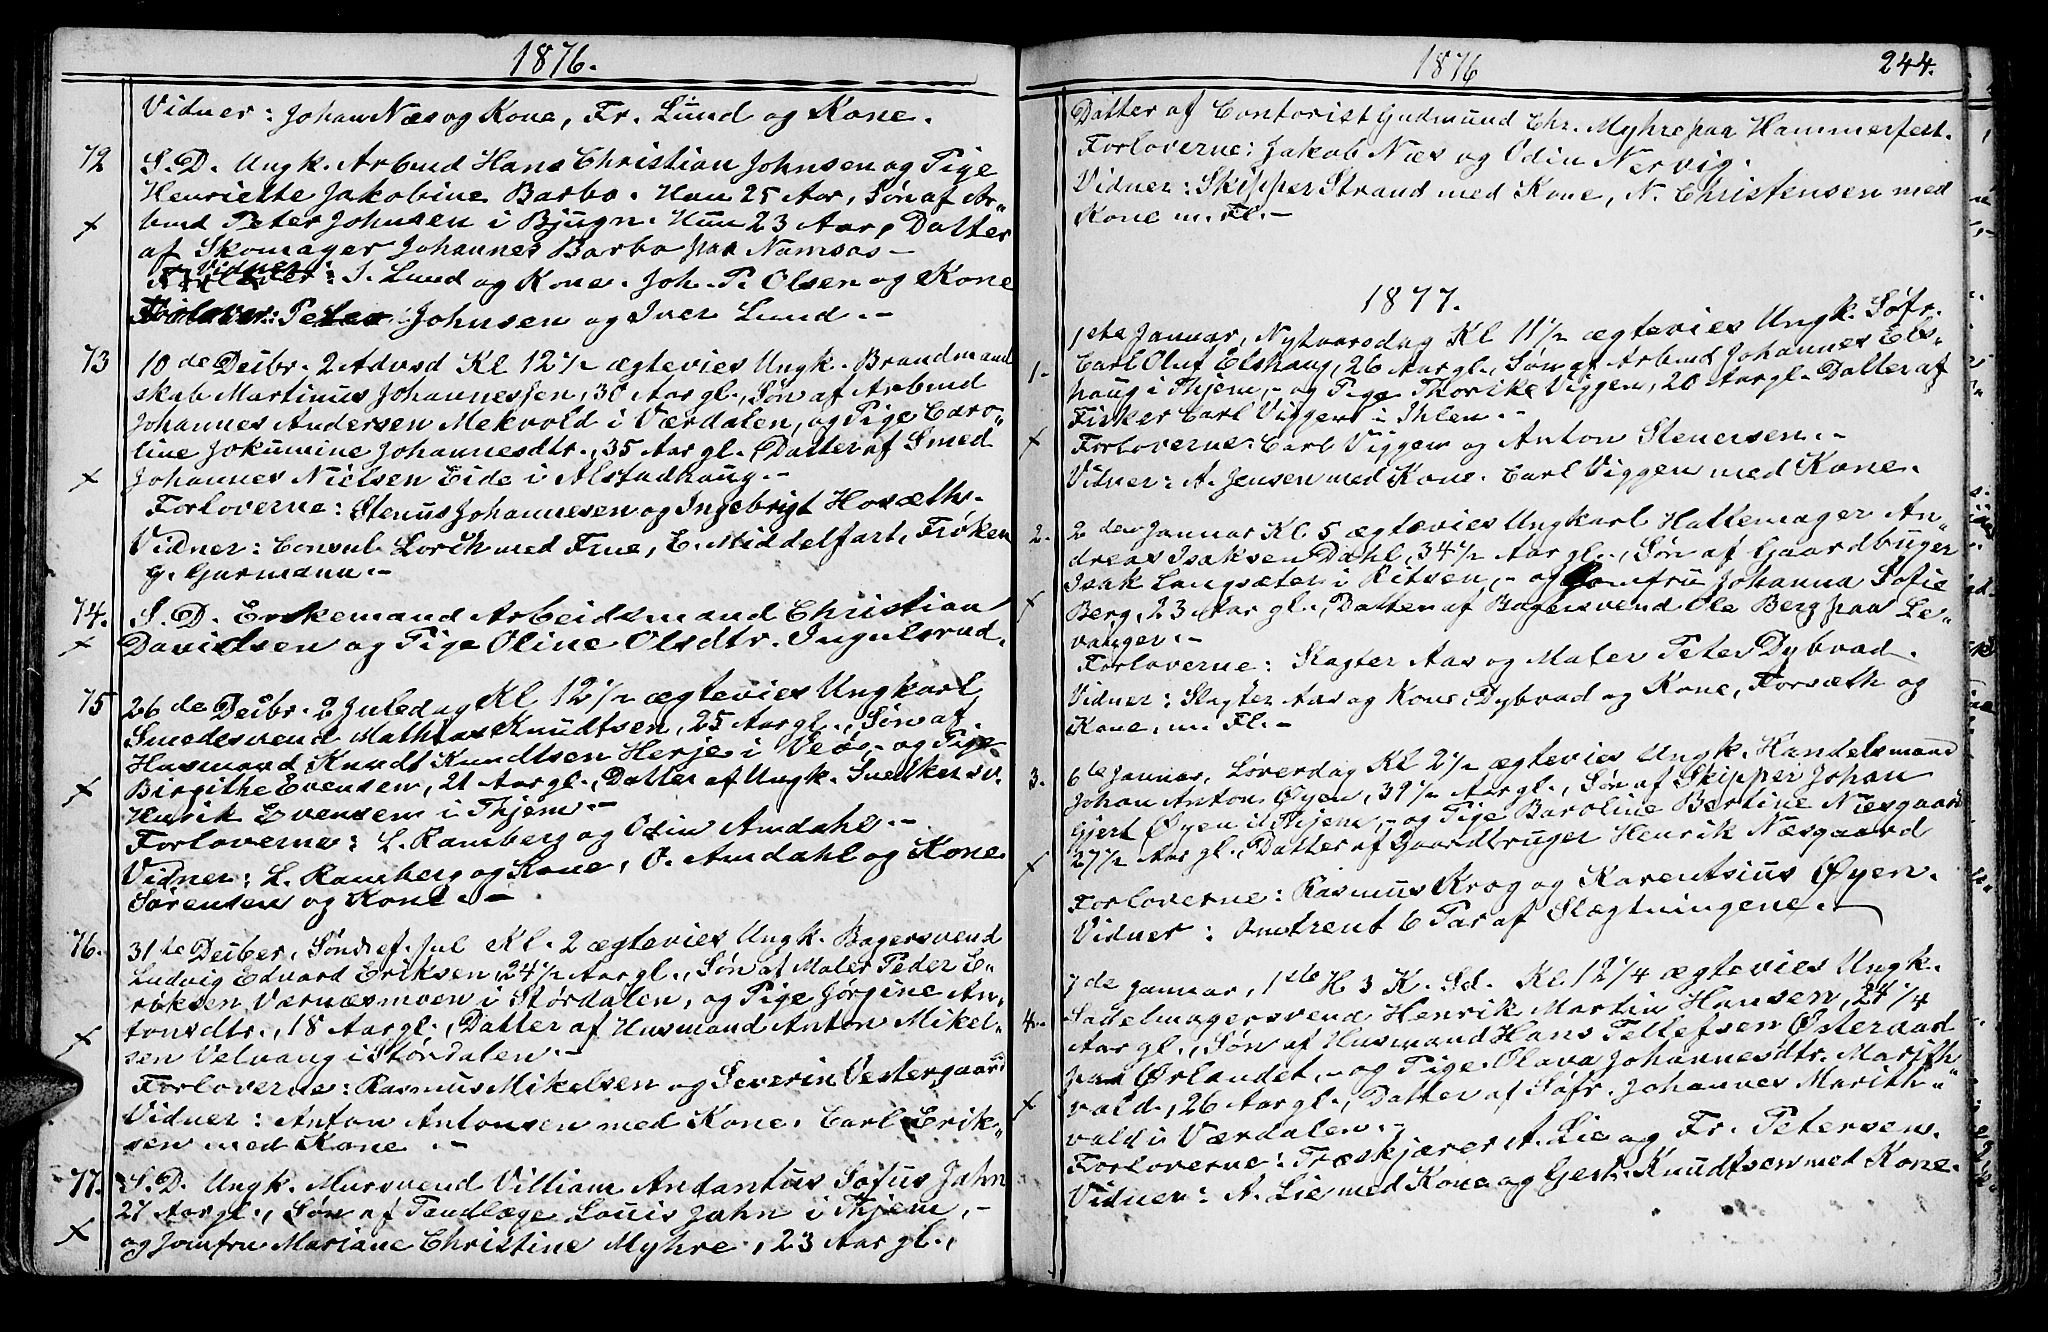 1876.
Vidner: Johan Næs og Kone, Fr. Lund og Kone.
72 S. D. Ungk. Arbmd Hans Christian Johnsen og Pige
Henriette Jakobine Barbo. Han 25 Aar, Søn af Ar-
bmd Peter Johnsen i Bjugn. Hun 23 Aar, Datter
af Skomager Johannes Barbo paa Namsos –
Vidner: I. Lund og Kone. Joh. P. Olsen og Kone
Forlover: Peter Johnsen og Iver Lund. –
73 10de Decbr. 2 Advsd Kl 12½ ægtevies Ungk. Brandmand
skab Martinus Johannessen, 30 Aar gl., Søn af Arbmd
Johannes Andersen Mekvold i Værdalen, og Pige Caro-
line Jokumine Johannesdtr., 35 Aar gl., Datter af Smed
Johannes Nielsen Eide i Alstadhaug. –
Forloverne: Stenus Johannesen og Ingebrigt Hosæth.
Vidner: Consul Lorck med Frue, E. Middelfart, Frøken
G. Garmann. –
74. S. D. Enkemand Arbeidsmand Christian
Davidsen og Pige Oline Olsdtr. Ingulsrud.
75 26de Decbr. 2 Juledag Kl 12½ ægtevies Ungkarl
Smedesvend Mathias Knudtsen, 25 Aar gl., Søn af
Husmand Knudt Knudtsen Herje i Veø, – og Pige
Birgithe Evensen, 21 Aar gl., Datter af Ungk. Snedkersv.
Henrik Evensen i Thjem. –
Forloverne: L. Ramberg og Odin Amdahl. –
Vidner: L. Ramberg og Kone, O. Amdahl og Kone
Sørensen og Kone. –
76. 31te Decber, Sønd. ef. Jul Kl. 2 ægtevies Ungk. Bagersvend
Ludvig Edvard Eriksen, 24½ Aar gl., Søn af Maler Peder E-
riksen Værnæsmoen i Størdalen, og Pige Jørgine An-
tonsdtr., 18 Aar gl., Datter af Husmand Anton Mikel-
sen Velvang i Størdalen. –
Forloverne: Rasmus Mikelsen og Severin Vestergaard
Vidner: Anton Antonsen med Kone. Carl Erik-
sen med Kone. –
77. S. D. Ungk. Mursvend Villiam Andantus Sofus Jahn
21 Aar gl., Søn af Tandlæge Louis Jahn i Thjem, –
og Jomfru Mariane Christine Myhre, 23 Aar gl.,
1876 244.
Datter af Contorist Gudmund Chr. Myhre paa Hammerfest.
Forloverne: Jakob Næs og Odin Nervig.
Vidner: Skipper Strand med Kone, N. Christensen med
Kone m. Fl. –
1877.
1. 1ste Januar, Nytaarsdag Kl 11½ ægtevies Ungk. Søfr.
Carl Oluf Elshaug, 26 Aar gl., Søn af Arbmd Johannes Els-
haug i Thjem, – og Pige Thorike Viggen, 20 Aar gl. Datter af
Fisker Carl Viggen i Ihlen. –
Forloverne: Carl Viggen og Anton Stenersen. –
Vidner: A. Jensen med Kone. Carl Viggen med Kone.
2. 2den Januar Kl 5 ægtevies Ungkarl Hattemager An-
dreas Isaksen Dahl, 34½ Aar gl., Søn af Gaardbruger
Isak Langsæter i Ritsen, – og Jomfru Johanna Sofie
Berg, 23 Aar gl., Datter af Bagersvend Ole Berg paa Le-
vanger. –
Forloverne: Slagter Aas og Maler Peter Dybvad.
Vidner: Slagter Aas og Kone, Dybvad og Kone, Forsæth og
Kone, m. Fl. –
3. 6te Januar, Løverdag Kl 2½ ægtevies Ungk. Handelsmand
Johan Anton Øyen, 39½ Aar gl., Søn af Skipper Johan
Gjert Øyen i Thjem, – og Pige Baroline Bertine Næsgaard
27½ Aar gl., Datter af Gaardbruger Henrik Næsgaard
Forloverne: Rasmus Krog og Karentsius Øyen.
Vidner: Omtrent 6 Par af Slægtningene. –
4. 7de Januar, 1ste H 3 K. Sd. Kl 12¼ ægtevies Ungk.
Sadelmagersvend Henrik Martin Hansen, 24¼
Aar gl., Søn af Husmand Hans Tellefsen Østeraad
paa Ørlandet, – og Pige Olava Johannesdtr. Marith
vald, 26 Aar gl., Datter af Søfr. Johannes Marith-
vald i Værdalen. –
Forloverne: Træskjærer A. Lie og Fr. Petersen.
Vidner: A. Lie med Kone og Gert. Knudtsen med Kone.